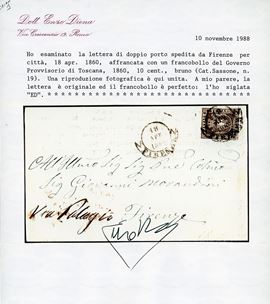 Dott. Enzo Diena
Via Crescenzio 19, Roma
10 novembre 1988
Ho esaminato la lettera di doppio porto spedita da Firenze per
città, 18 apr. 1860, affrancata con un francobollo del Governo
Provvisorio di Toscana, 1860, 10 cent., bruno (Cat.Sassone, n.
19). Una riproduzione fotografica è qui unita. A mio parere, la
lettera è originale ed il francobollo è perfetto: l'ho siglata
"ED".
18
1860
FIRENZE
Sig Giovanni
Via Palagio Firenze